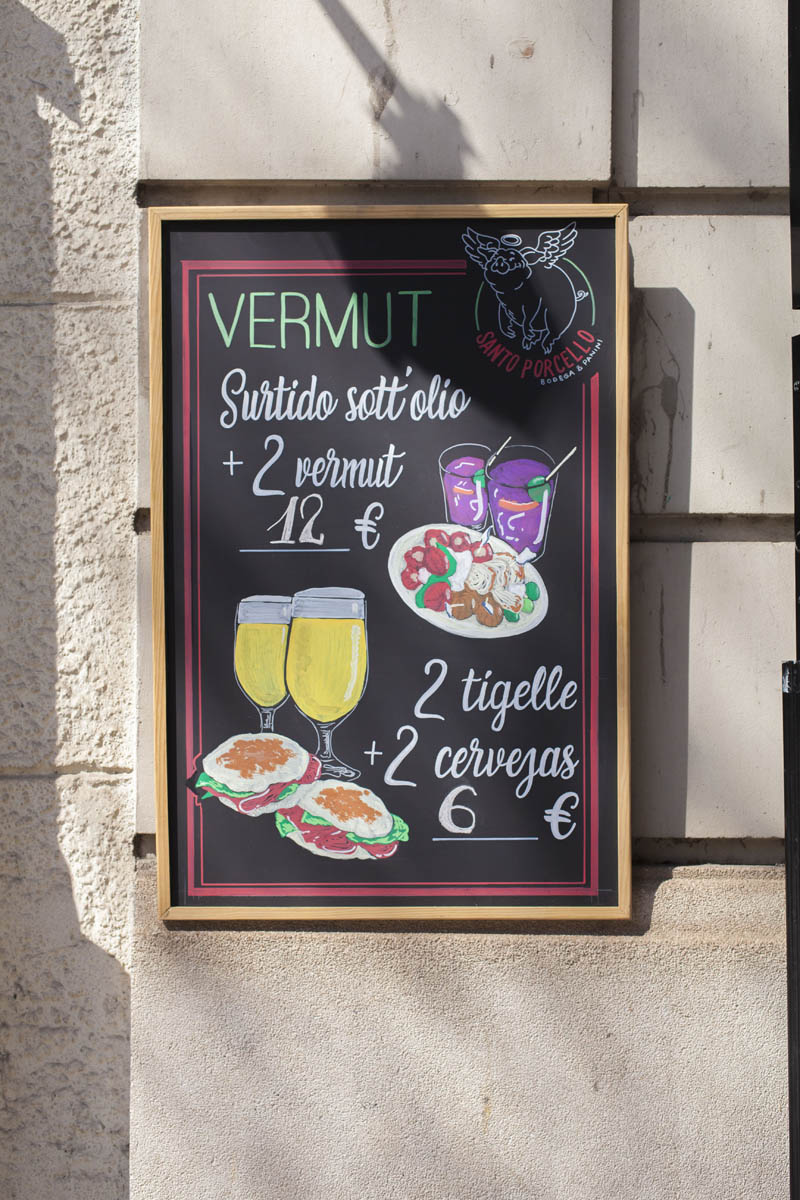 VERMUT
SANTO PORCELLO
BODEGA & PANINI
Surtido sott'olio
+ 2 vermut
12 €
2 tigelle
+ 2 cervejas
6 €